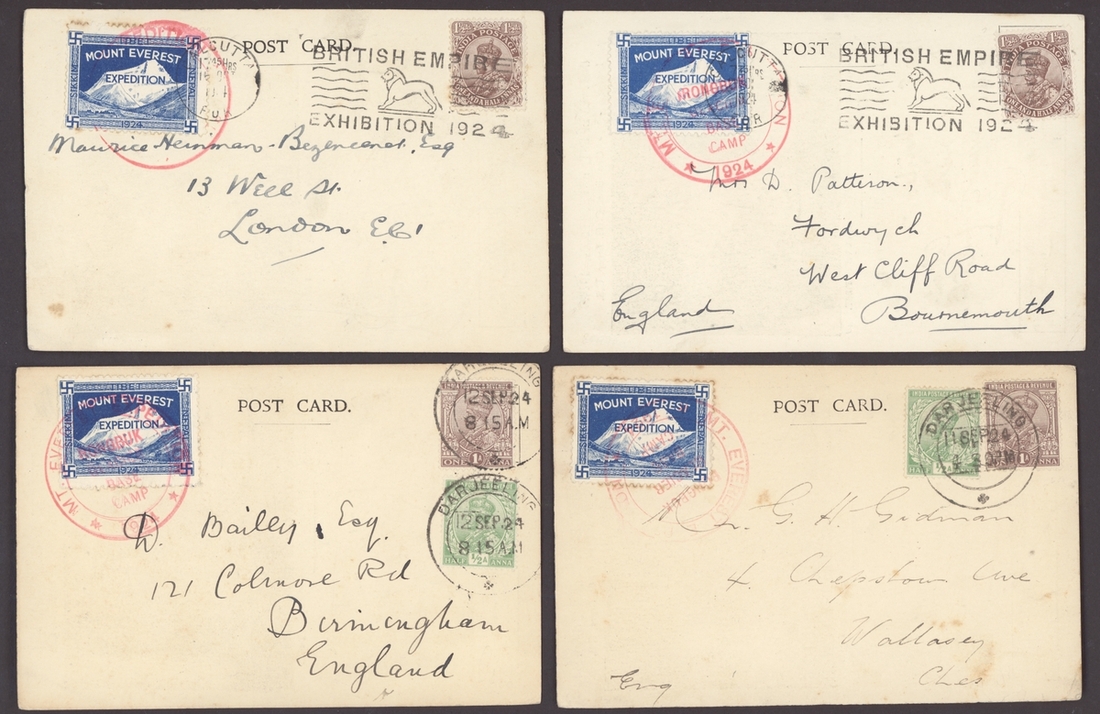 POST CARD.
TIBET
MOUNT EVEREST
EXPEDITION
1924
SIKKIM
BRITISH EMPIRE
EXHIBITION 1924
INDIA POSTAGE
Maurice Heinman-Bezencenet, Esq
13 Well St.
London EC1
POST CARD.
MOUNT EVEREST
EXPEDITION
1924
SIKKIM
RONGBUK
BASE
CAMP
★ 1924 ★
BRITISH EMPIRE
EXHIBITION 1924
INDIA POSTAGE
Mrs D. Pattison,
Fordwych
West Cliff Road
England
Bournemouth
POST CARD.
TIBET
MOUNT EVEREST
EXPEDITION
1924
SIKKIM
RONGBUK
BASE
CAMP
★ 1924 ★
MT. EVE
DARJEELING
12 SEP.24
8 15 A.M
INDIA POSTAGE & REVENUE
1A
DARJEELING
12 SEP.24
8 15 A.M
HALF ½A ANNA
D. Bailey, Esq.
121 Colmore Rd
Birmingham
England
POST CARD.
TIBET
MOUNT EVEREST
EXPEDITION
1924
SIKKIM
MT. EVEREST
INDIA POSTAGE
INDIA POSTAGE & REVENUE
DARJEELING
11 SEP.24
HALF ½A
1A ANNA
Mr. G. H. Gidman
4 Chepstow Ave
Wallasey
Eng
Ches